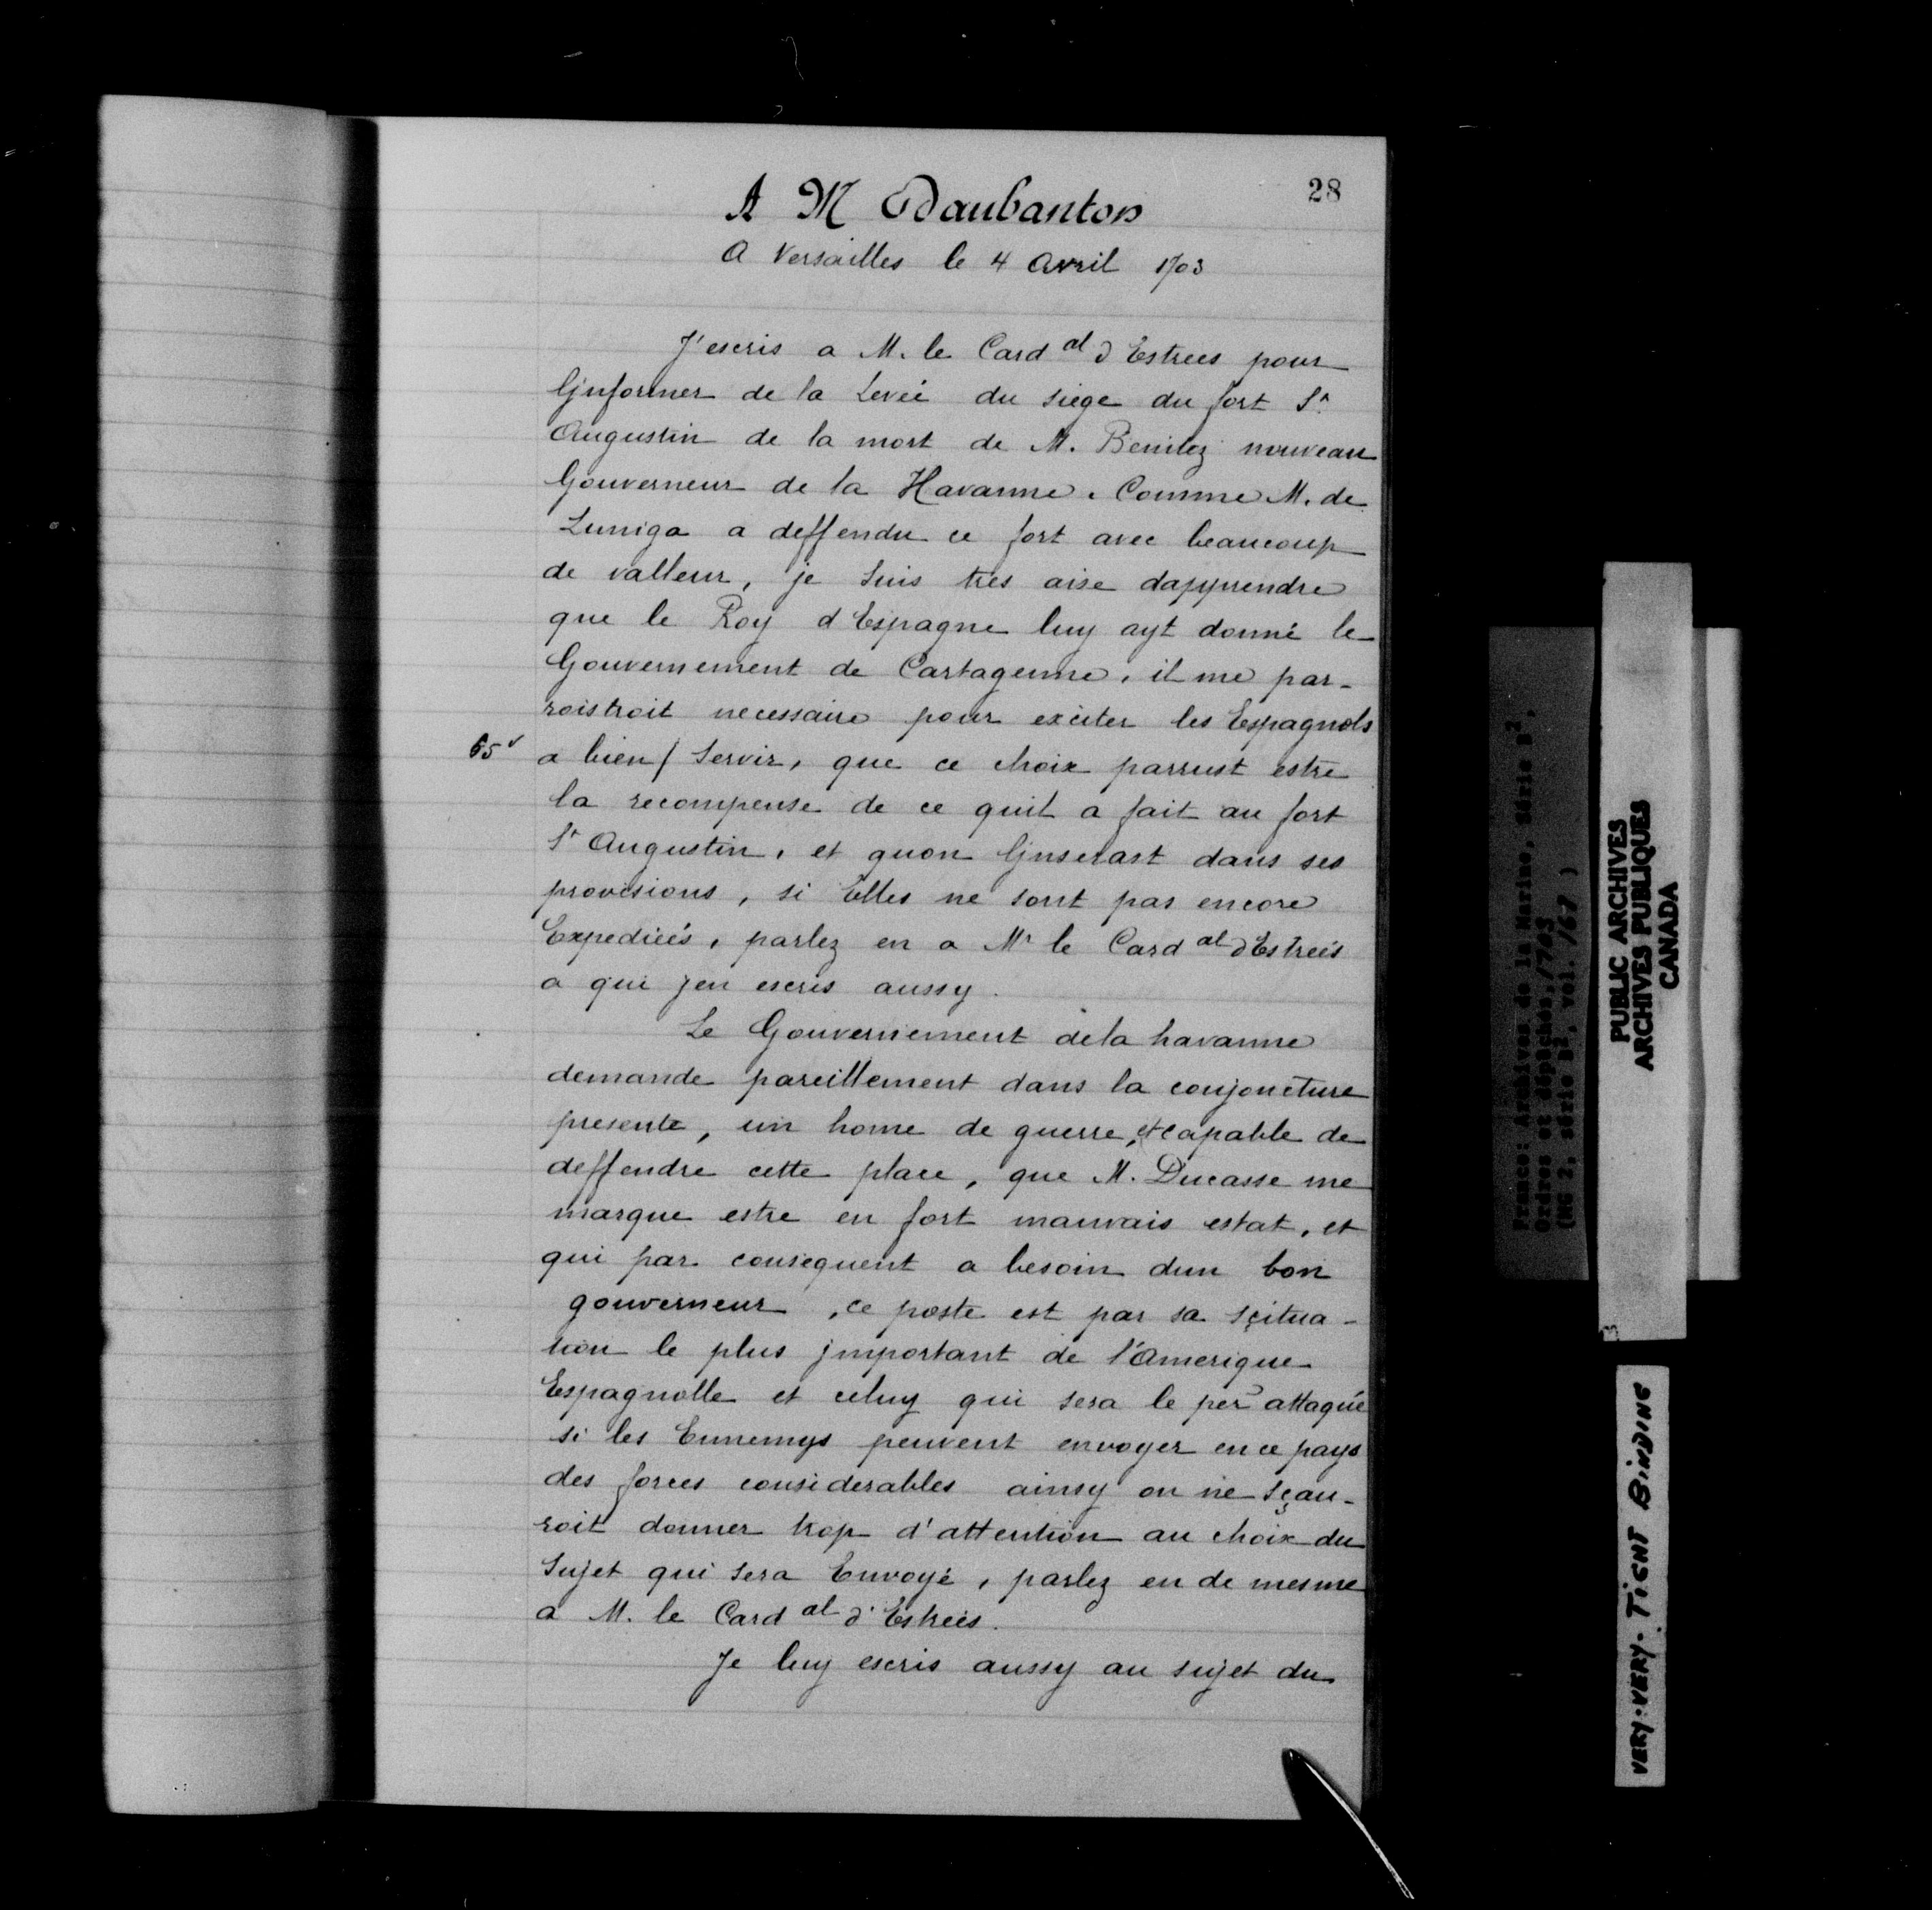 28
A M Daubanton
A Versailles le 4 Avril 1703
J'escris a M. le Card al d Estrees pour
l'jnformer de la Levée du siege du fort St
Augustin de la mort de M. Benitez nouveau
Gouverneur de la Havanne. Comme M. de
Zuniga a deffendu ce fort avec beaucoup
de valleur, je suis tres aise dapprendre
que le Roy d'Espagne luy ayt donné le
Gouvernement de Cartagenne, il me par-
roistroit necessaire pour exciter les Espagnols
65v a bien / Servir, que ce choix parrust estre
la recompense de ce quil a fait au fort
St Augustin, et quon l'jnserast dans ses
provisions, si Elles ne sont pas encore
Expediées, parlez en a Mr le Card al d'Estreés
a qui j'en escris aussy.
Le Gouvernement dela havanne
demande pareillement dans la conjoncture
presente, un home de guerre, et capable de
deffendre cette place, que M. Ducasse me
marque estre en fort mauvais estat, et
qui par consequent a besoin dun bon
gouverneur, ce poste est par sa sçitua-
tion le plus jmportant de l'Amerique
Espagnolle et celuy qui sera le per attaqué
si les Ennemys peuvent envoyer en ce pays
des forces considerables ainsy on ne sçau-
roit donner trop d'attention au choix du
Sujet qui sera Envoyé, parlez en de mesme
a M. le Card al d'Estreés.
Je luy escris aussy au sujet du
France: Archives de la Marine, Série B2,
Ordres et dépêches, 1703
(MG 2, série B2, vol. 167)
PUBLIC ARCHIVES
ARCHIVES PUBLIQUES
CANADA
3
VERY-VERY-TIGHT BINDING